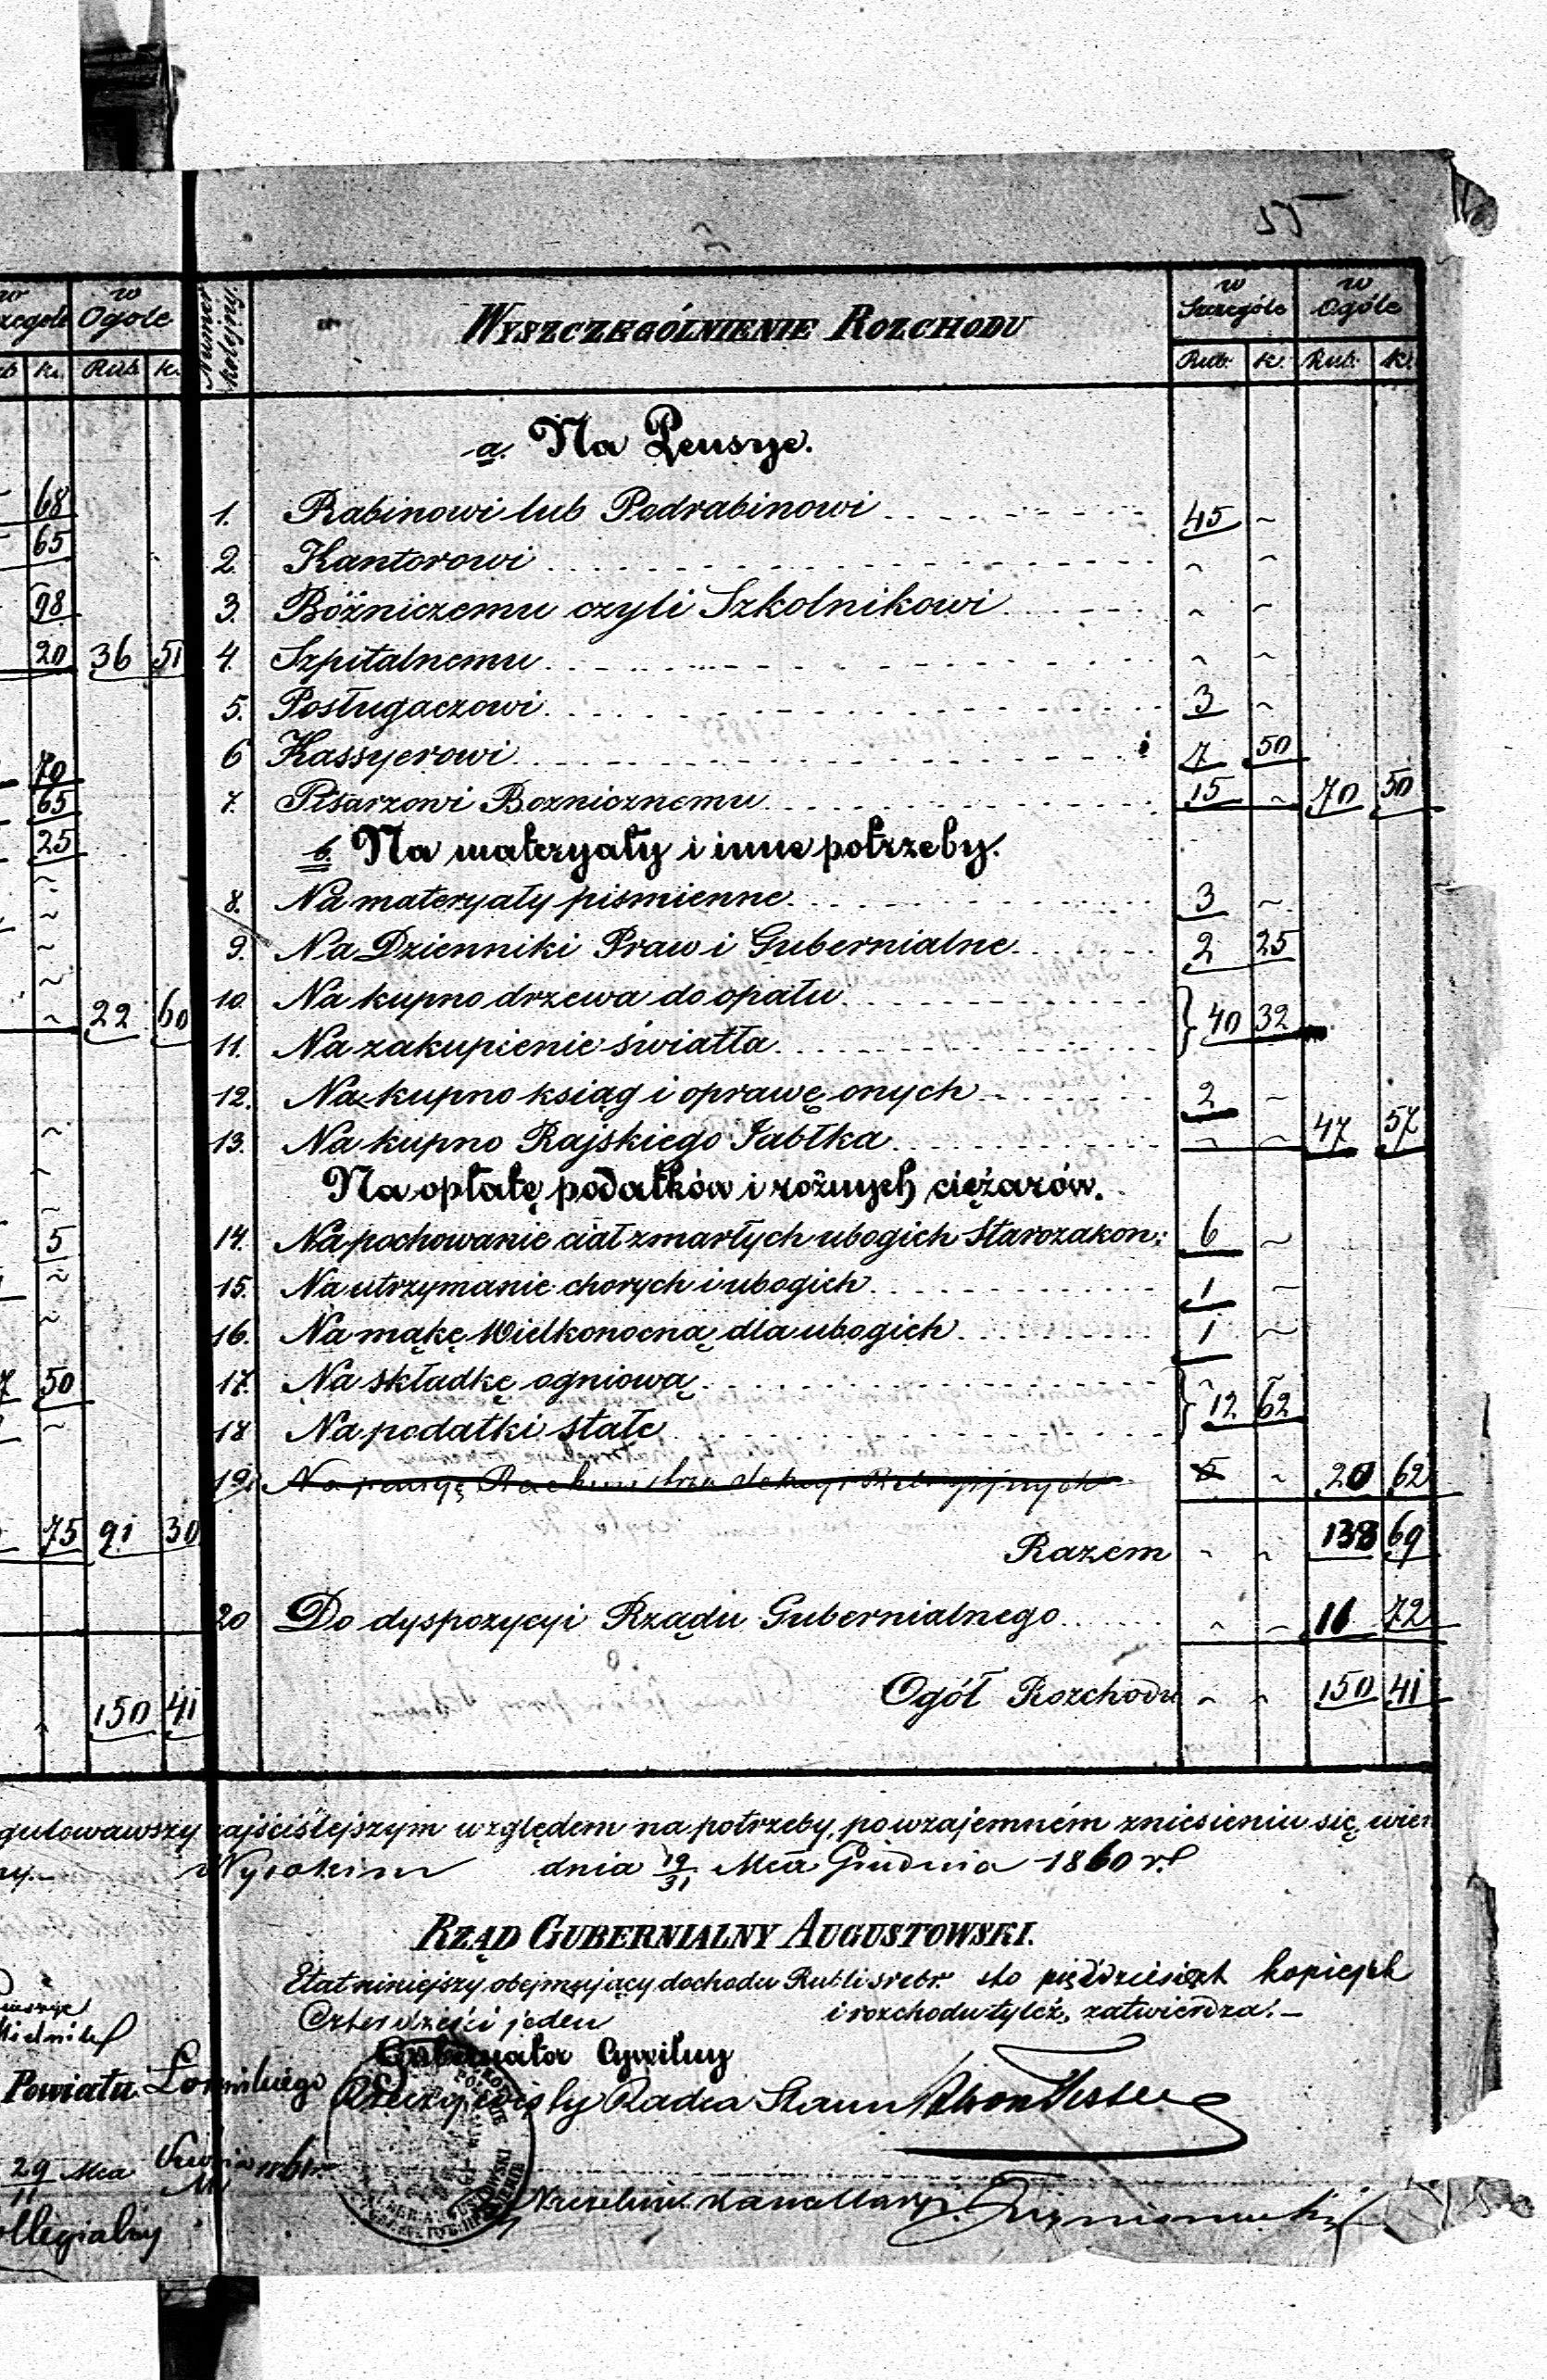 55
w Ogole
Rub. k.
68
65
98
20 36 51
70
65
25
22 60
5
50
75 91 30
150 41
Numer kolejny.
WYSZCZEGÓLNIENIE ROZCHODU
w Szczególe
w Ogóle
Rub. k. Rub. k.
a. Na Pensye.
1. Rabinowi lub Podrabinowi 45 ~
2. Kantorowi ~ ~
3. Bóżniczemu czyli Szkolnikowi ~ ~
4. Szpitalnemu ~ ~
5. Posługaczowi 3 ~
6 Kassyerowi 7 50
7. Pisarzowi Boznicznemu 15 ~ 70 50
b. Na materyały i inne potrzeby.
8. Na materyały piśmienne 3 ~
9. Na Dzienniki Praw i Gubernialne 2 25
10. Na kupno drzewa do opału
11. Na zakupienie światła } 40 32
12. Na kupno ksiąg i oprawę onych 2 ~
13. Na kupno Rajskiego Jabłka ~ ~ 47 57
Na opłatę podatków i rożnych ciężarów.
14. Na pochowanie ciał zmarłych ubogich Starozakon: 6 ~
15. Na utrzymanie chorych i ubogich 1 ~
16. Na mąkę Wielkonocną dla ubogich 1 ~
17. Na składkę ogniową
18 Na podatki stałe } 12 62
19. Na pensyę ~ 20 62
Razem ~ ~ 138 69
20 Do dyspozycyi Rządu Gubernialnego ~ ~ 11 72
Ogół Rozchodu ~ ~ 150 41
najściślejszym względem na potrzeby, po wzajemném zniesieniu się,
Wysokim dnia 19/31 Mca Grudnia 1860 r.
RZĄD GUBERNIALNY AUGUSTOWSKI.
Etat niniejszy obejmujący dochodu Rubli srebr. sto pięćdziesiąt kopiejek
Czterdzieści jeden i rozchodu tyleż, zatwierdza.—
Gubernator Cywilny
Rzeczywisty Radca Stanu
Powiatu Łomżińskiego
29/11 Mca 1861 r.
Naczelnik Kancellaryi